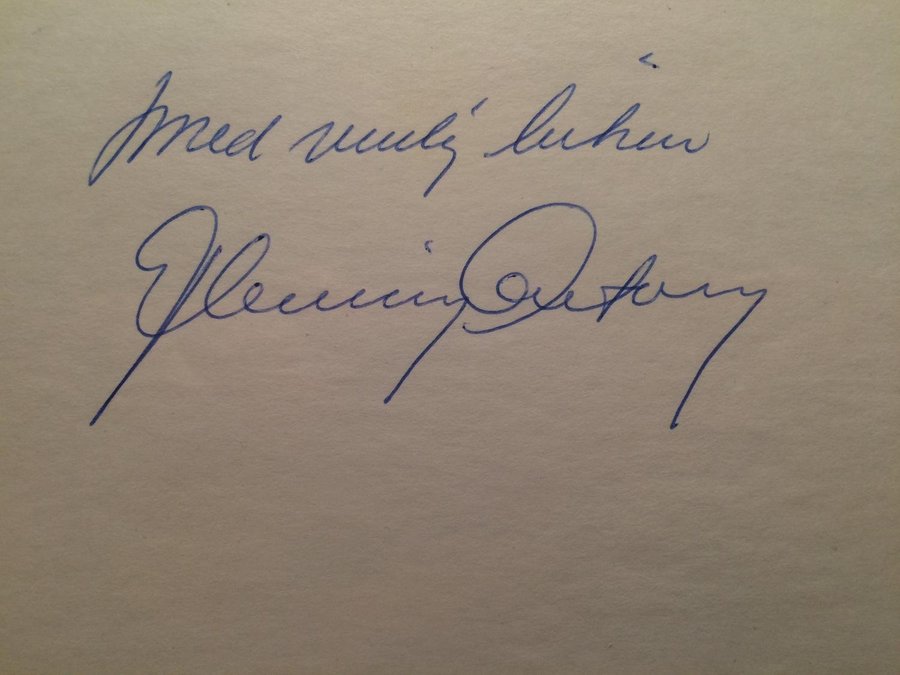 med venlig hilsen
Flemming Antony